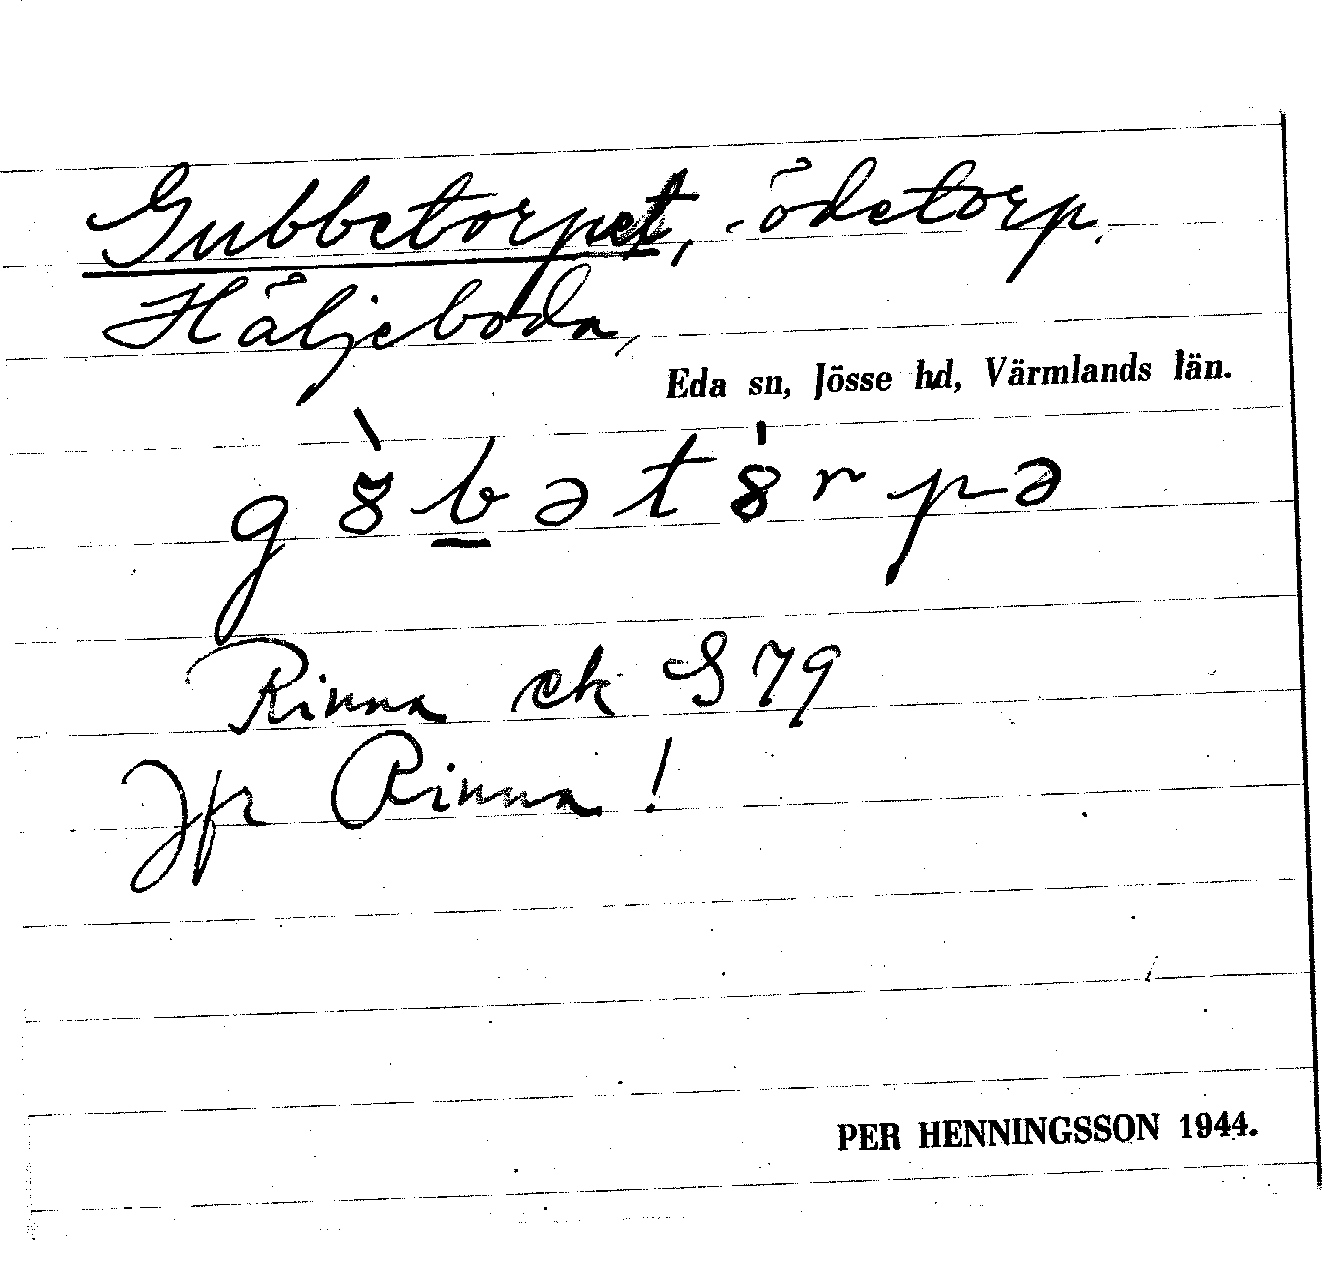 Gubbetorpet, ödetorp.
Håljeboda,
Eda sn, Jösse hd, Värmlands län.
g8̀bət8̍rpə
Rinna ek S 79
Jfr Rinna!
PER HENNINGSSON 1944.